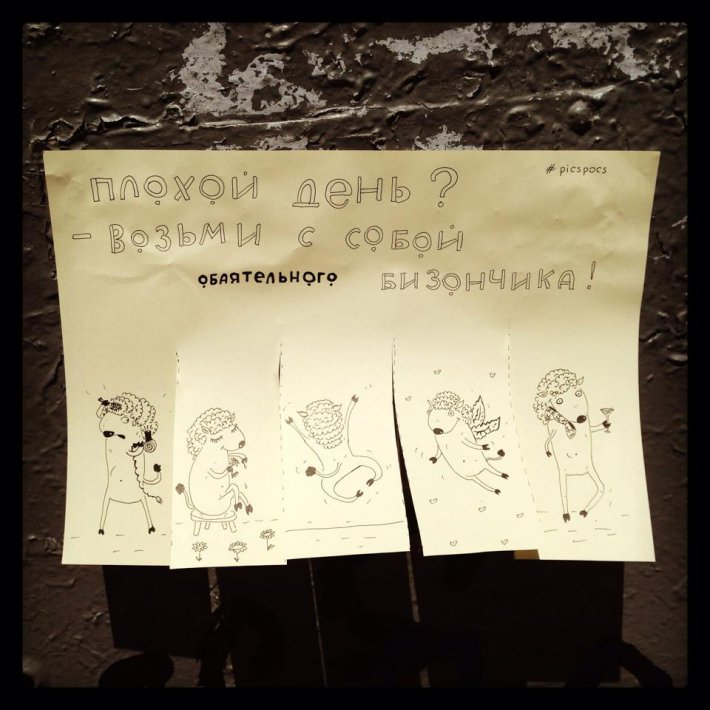 # picspocs
плохой день?
- возьми с собой
обаятельного бизончика!